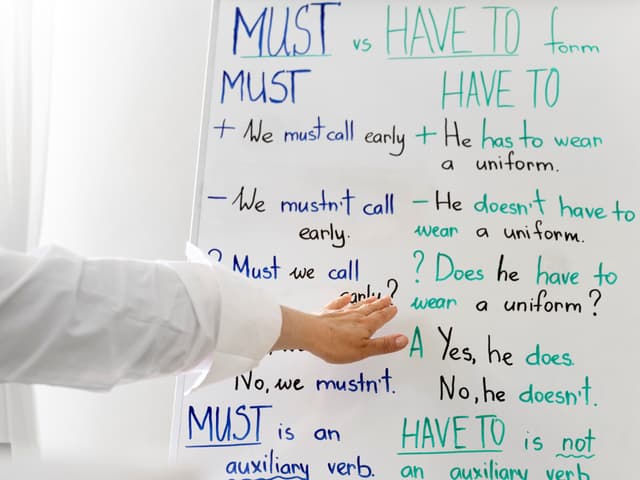 MUST vs HAVE TO form
MUST
+ We must call early
- We mustn't call
early.
? Must we call
early?
No, we mustn't.
MUST is an
auxiliary verb.
HAVE TO
+ He has to wear
a uniform.
- He doesn't have to
wear a uniform.
? Does he have to
wear a uniform?
A Yes, he does.
No, he doesn't.
HAVE TO is not
an auxiliary verb